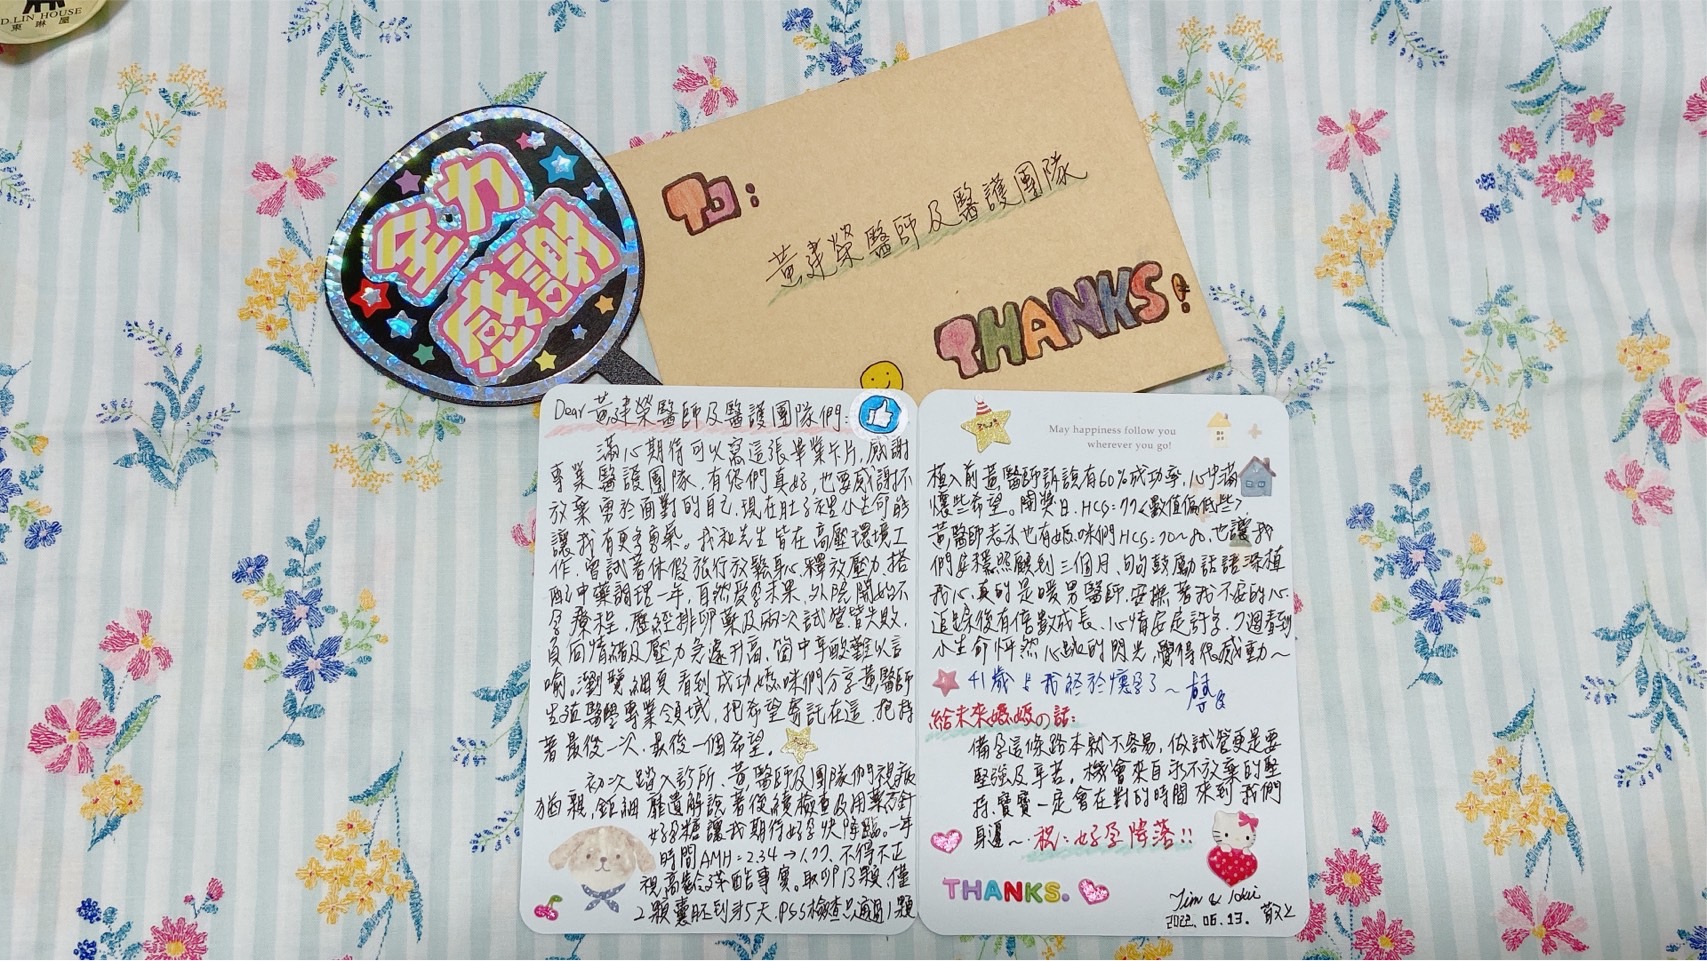 D.LIN HOUSE
東琳屋
全力
感謝
To:
黃建榮醫師及醫護團隊
THANKS!
Dear 黃建榮醫師及醫護團隊們:
滿心期待可以寫這張畢業卡片,感謝
專業醫護團隊,有您們真好,也要感謝不
放棄勇於面對的自己,現在肚子裡小生命能
讓我有更多勇氣。我和先生皆在高壓環境工
作,曾試著休假旅行放鬆身心釋放壓力,搭
配中藥調理一年,自然受孕未果,外院開始不
孕療程,歷經排卵藥及兩次試管皆失敗,
負面情緒及壓力急遽升高,箇中辛酸難以言
喻。瀏覽網頁看到成功媽咪們分享黃醫師
生殖醫學專業領域,把希望寄託在這,抱持
著最後一次,最後一個希望。
初次踏入診所,黃醫師及團隊們視病
猶親,鉅細靡遺解說著後續檢查及用藥方針
好孕糖讓我期待好孕快降臨。一年
時間AMH=2.34→1.77,不得不正
視高齡殘酷事實。取卵13顆,僅
2顆囊胚到第5天,PGS檢查只通過1顆
May happiness follow you
wherever you go!
植入前黃醫師訴說有60%成功率,心中滿
懷些希望。開獎日,HCG=77<數值偏低些>,
黃醫師表示也有媽咪們HCG=70~80,也讓我
們安穩照顧到三個月,句句鼓勵話語深植
我心,真的是暖男醫師,安撫著我不安的心。
追蹤後有倍數成長,心情安定許多,7週看到
小生命怦然心跳的閃光,覺得很感動~
41歲的我終於懷孕了~
給未來媽媽の話:
備孕這條路本就不容易,做試管更是要
堅強及辛苦。機會來自永不放棄的堅
持,寶寶一定會在對的時間來到我們
身邊~祝:好孕降落!!
THANKS.
2022.06.13. 敬上